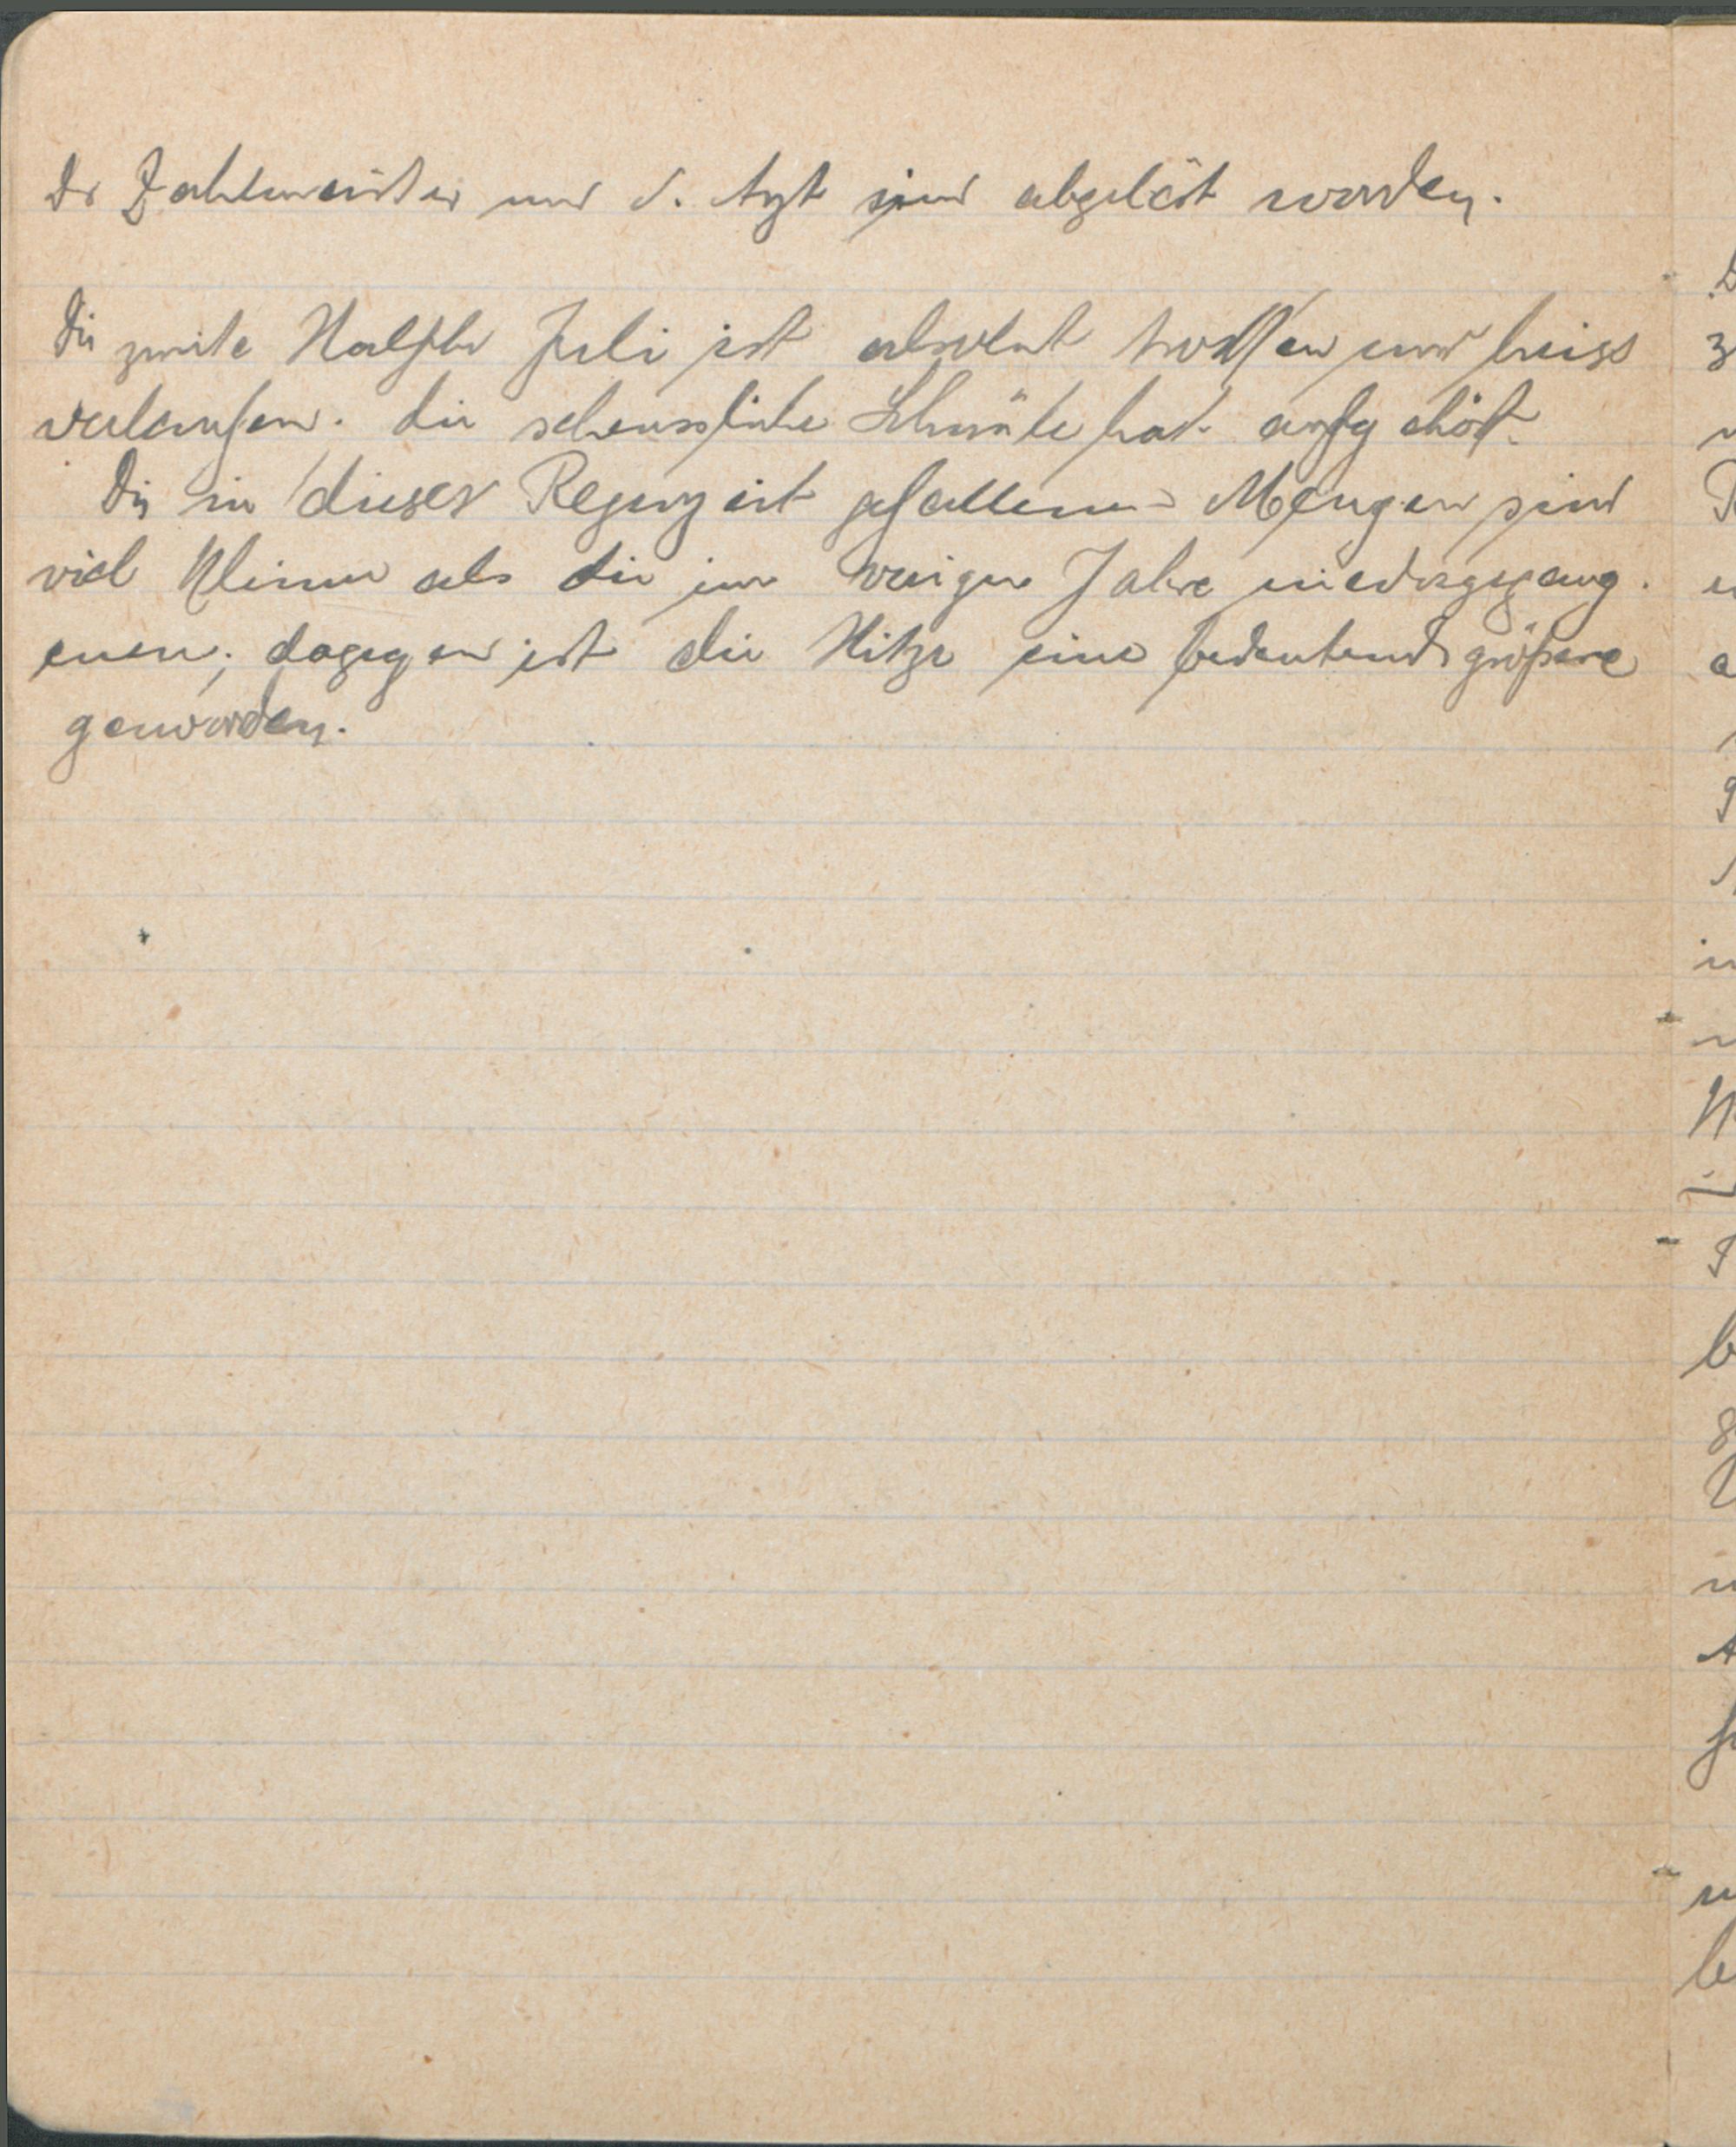 Der Zahlmeister und d. Arzt sind abgelöst worden.
Die zweite Hälfte Juli ist absolut trocken und heiss
verlaufen. Die scheussliche Schwüle hat aufgehört.
Die in dieser Regenzeit gefallenen Mengen sind
viel kleiner als die im vorigen Jahre niedergegang-
enen; dagegen ist die Hitze eine bedeutend größere
geworden.